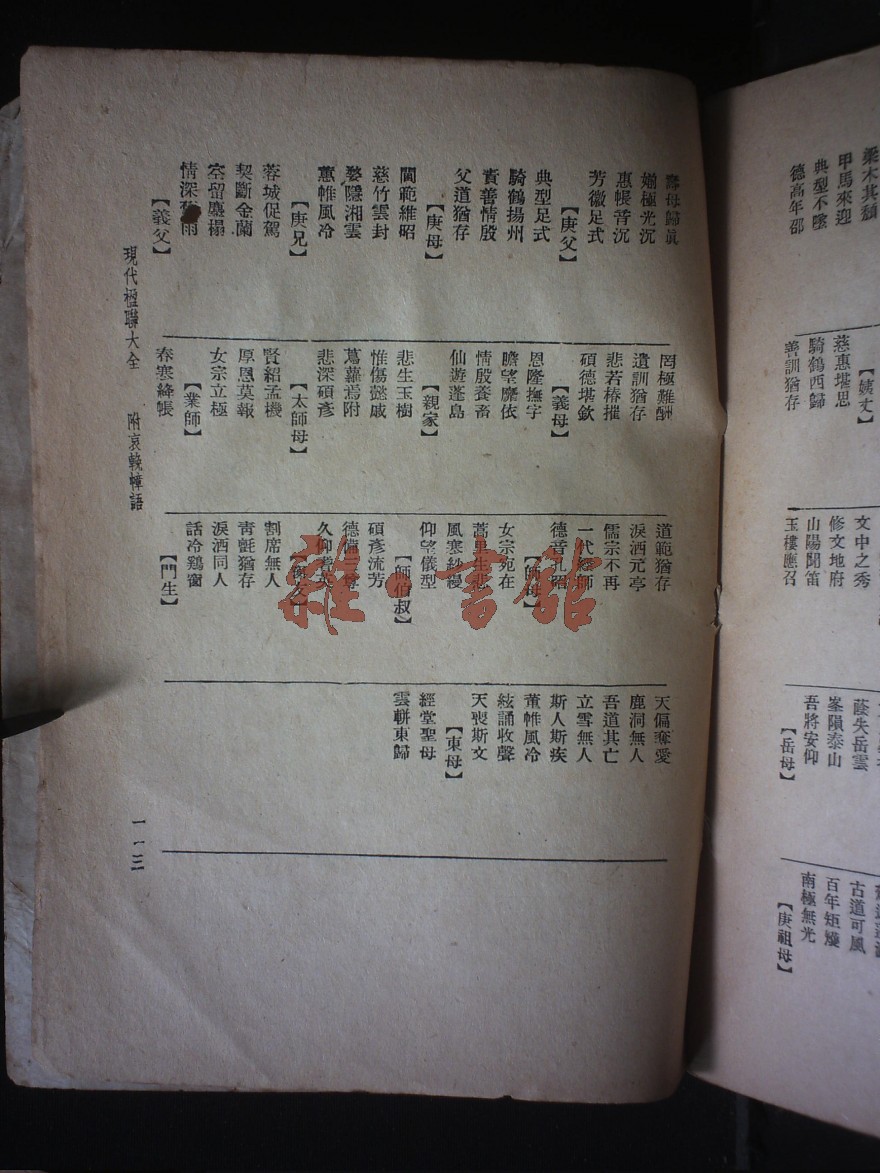 壽母歸真
婺極光沉
惠帳音沉
芳徽足式
【庚父】
典型足式
騎鶴揚州
責善情殷
父道猶存
【庚母】
閫範維昭
慈竹雲封
婺隱湘雲
蕙帷風冷
【庚兄】
蓉城促駕
契斷金蘭
空留塵榻
情深雨
【義父】
罔極難酬
遺訓猶存
悲若椿摧
碩德堪欽
【義母】
恩隆撫字
瞻望靡依
情殷養畜
仙遊蓬島
【親家】
悲生玉樹
惟傷懿戚
蔦蘿焉附
悲深碩彥
【太師母】
賢紹孟機
厚恩莫報
女宗立極
【業師】
春寒絳帳
道範猶存
淚洒元亭
儒宗不再
一代經師
德音孔昭
【師母】
女宗宛在
蒿里生悲
風寒紗幔
仰望儀型
【師伯叔】
碩彥流芳
德備尊
久仰耆英
【窗友】
割席無人
青氈猶存
淚洒同人
話冷鷄窗
【門生】
天偏奪愛
鹿洞無人
吾道其亡
立雪無人
斯人斯疾
董帷風冷
絃誦收聲
天喪斯文
【東母】
經堂聖母
雲軿東歸
現代楹聯大全 附哀輓幛語
一一三
梁木其頹
甲馬來迎
典型不墜
德高年邵
【姨丈】
慈惠堪思
騎鶴西歸
善訓猶存
文中之秀
修文地府
山陽聞笛
玉樓應召
蔭失岳雲
峯隕泰山
吾將安仰
【岳母】
古道可風
百年矩矱
南極無光
【庚祖母】
雜·書館